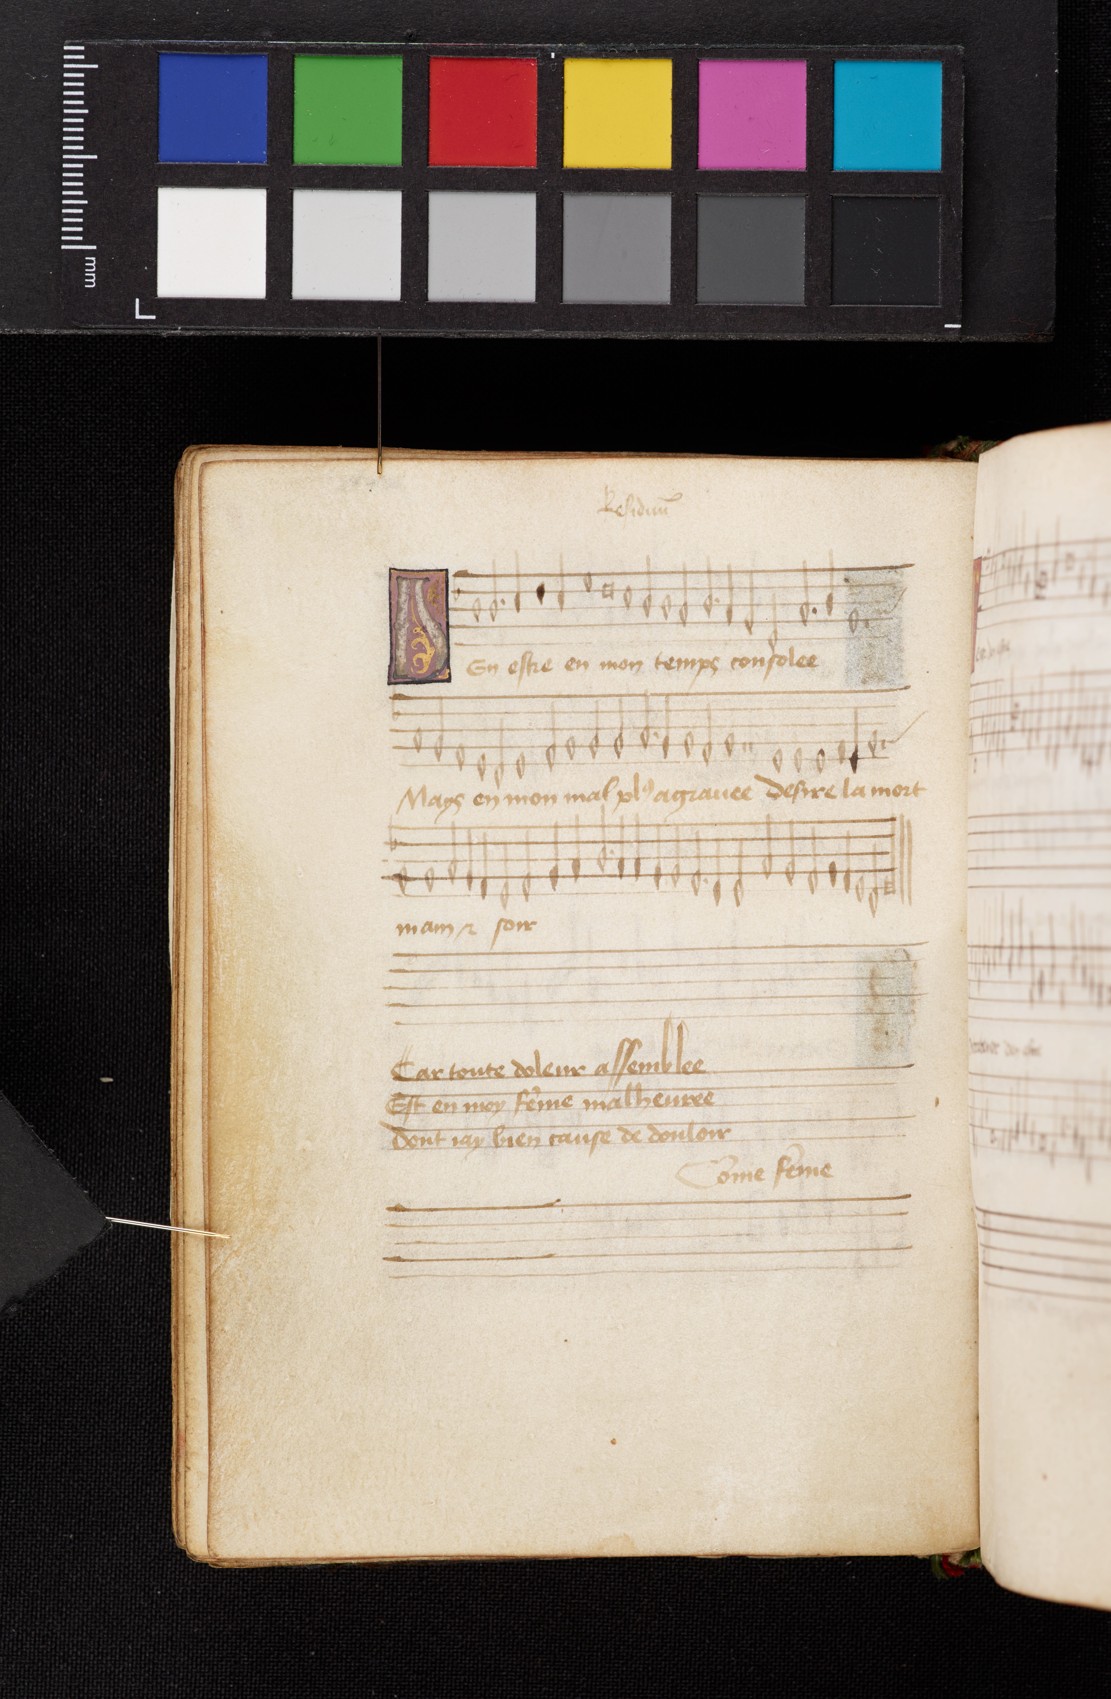 mm
Residuũ
En estre en mon temps consolee
Mays en mon mal plꝰ agravee desire la mort
main ⁊ soir
Car toute doleur assemblee
Est en moy fẽme malheuree
Dont iay bien cause de douloir
Cõme fẽme